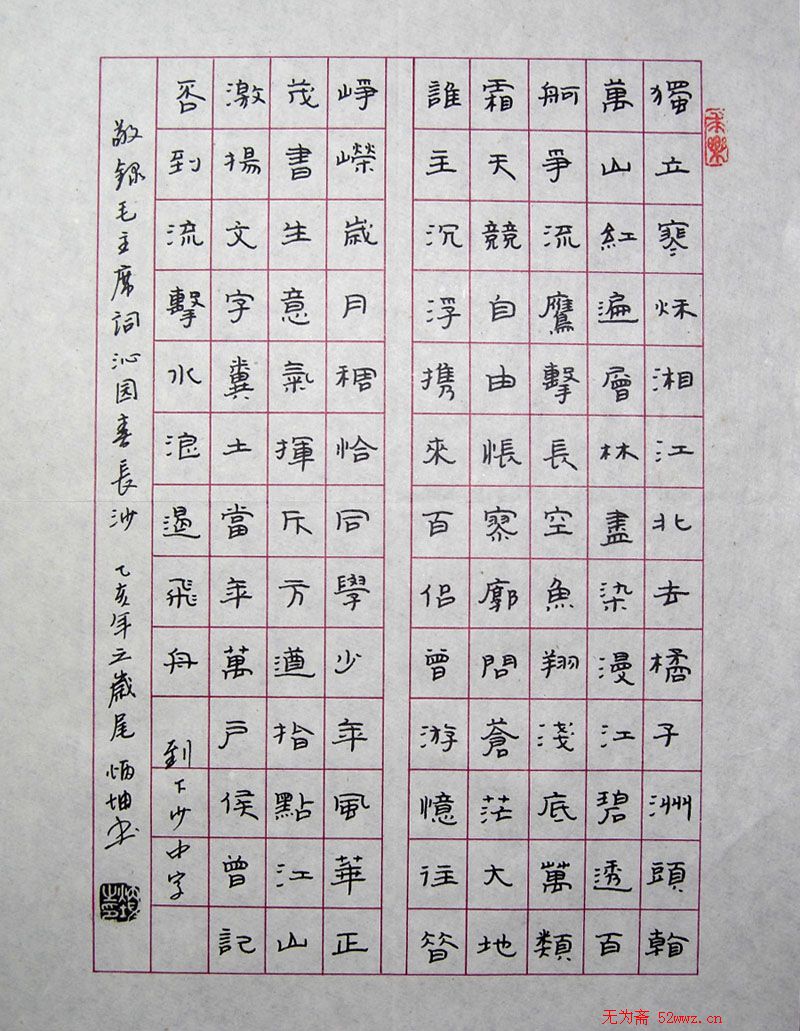 獨立寒秋湘江北去橘子洲頭看
萬山紅遍層林盡染漫江碧透百
舸爭流鷹擊長空魚翔淺底萬類
霜天競自由悵寥廓問蒼茫大地
誰主沉浮携來百侶曾游憶往昔
崢嶸歲月稠恰同學少年風華正
茂書生意氣揮斥方遒指點江山
激揚文字糞土當年萬戶侯曾記
否到流擊水浪遏飛舟 到下少中字
敬錄毛主席詞沁园春長沙 乙亥年之歲尾 炳坤书
无为斋 52wwz.cn